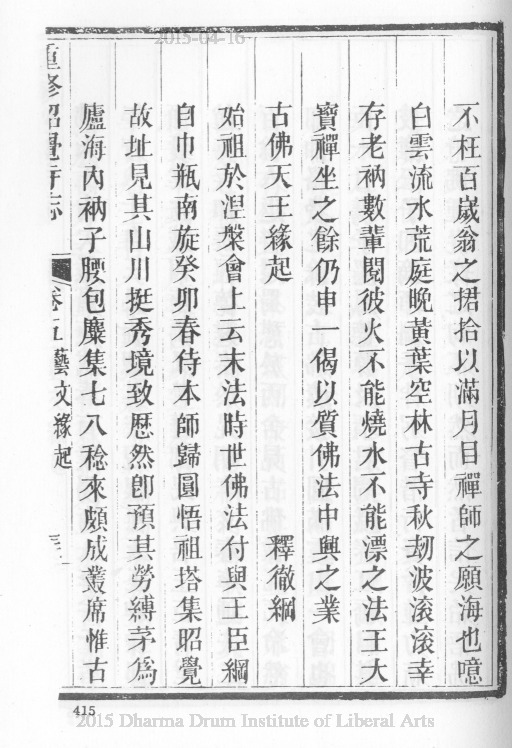 2015-04-16
不枉百歲翁之捃拾以滿月目禪師之願海也噫
白雲流水荒庭晚黃葉空林古寺秋刧波滚滚幸
存老衲數輩閱彼火不能燒水不能漂之法王大
寶禪坐之餘仍申一偈以質佛法中興之業
古佛天王緣起 釋徹綱
始祖於湼槃會上云末法時世佛法付與王臣綱
自巾瓶南旋癸卯春侍本師歸圓悟祖塔集昭覺
故址見其山川挺秀境致歷然卽預其勞縛茅爲
廬海內衲子腰包麇集七八稔來頗成叢席惟古
重修昭覺寺志 卷五藝文緣起
415
2015 Dharma Drum Institute of Liberal Arts